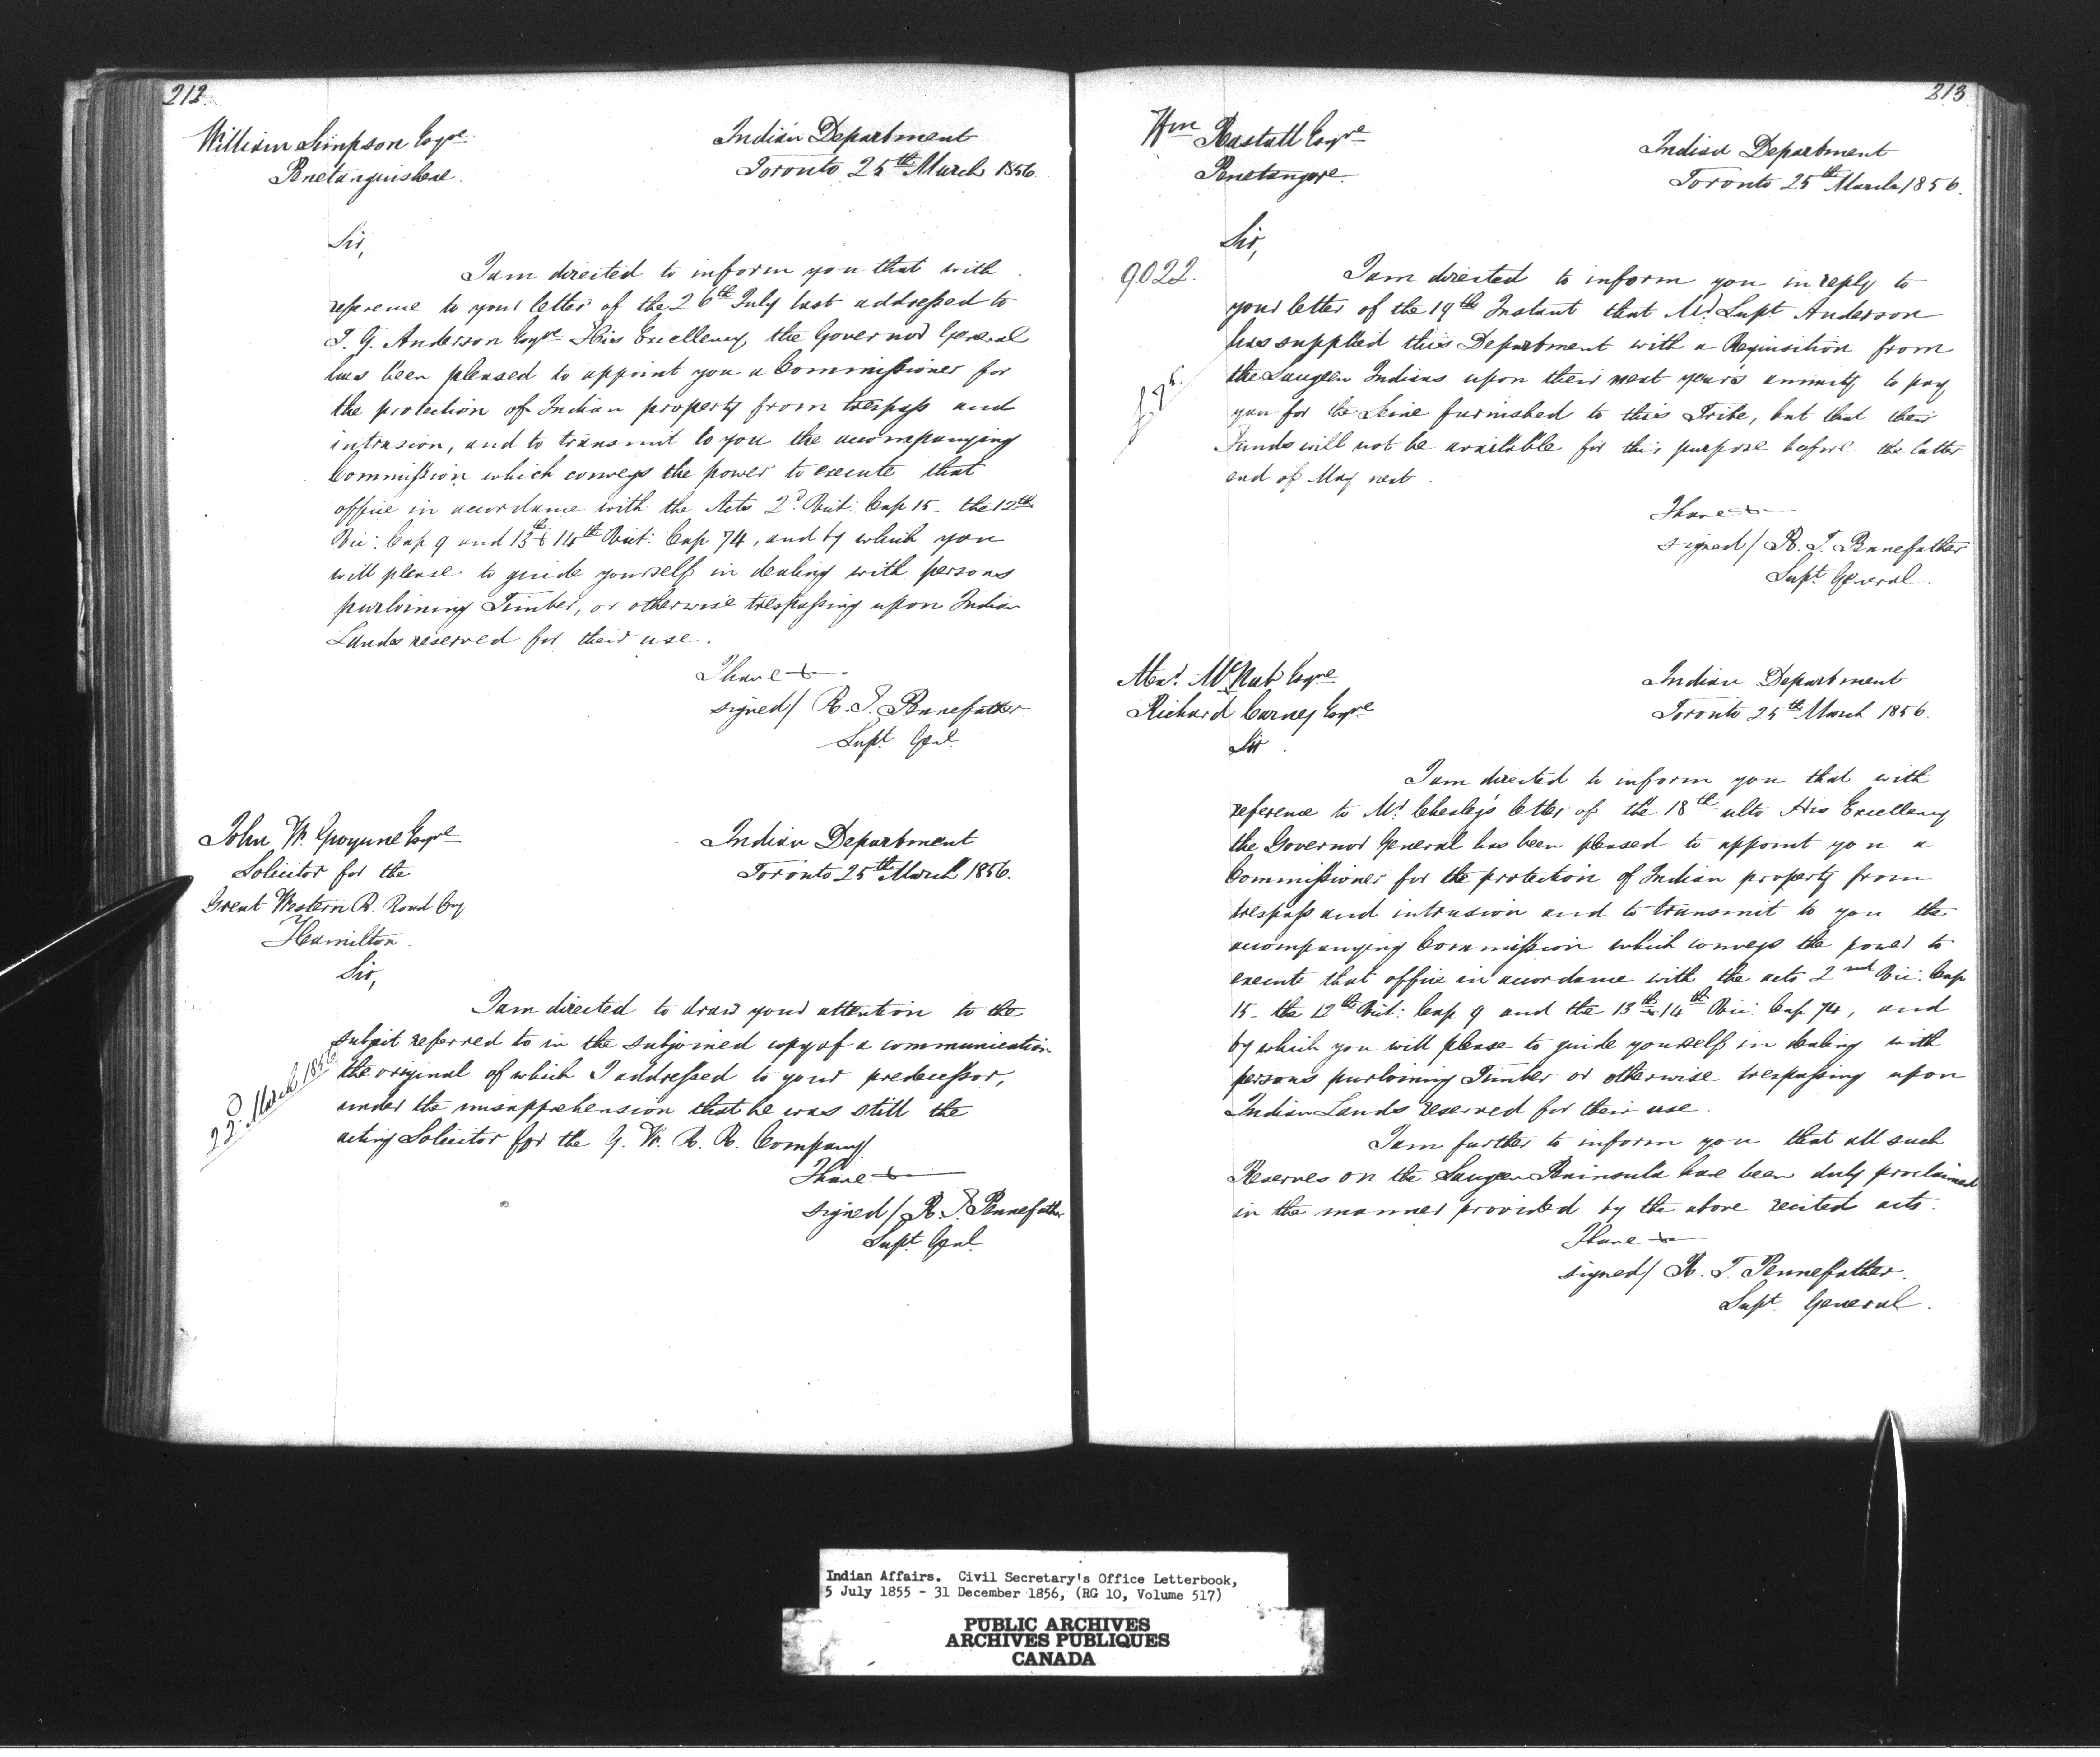 212
William Simpson Esqre
Penetanguishene.
Indian Department
Toronto 25th March 1856.
Sir,
I am directed to inform you that with
reference to your letter of the 26th July last addressed to
T. G. Anderson Esqre His Excellency the Governor General
has been pleased to appoint you a Commissioner for
the protection of Indian property from trespass and
intrusion, and to transmit to you the accompanying
Commission which conveys the power to execute that
office in accordance with the Acts 2d Vict: Cap 15 - the 12th
Vic: Cap 9 and 13th & 14th Vict: Cap 74, and by which you
will please to guide yourself in dealing with persons
purloining Timber, or otherwise trespassing upon Indian
Lands reserved for their use.
I have &
signed/ R. T. Pennefather
Supt. Genl.
John W. Gwynne Esqre
Solicitor for the
Great Western R. Road Coy
Hamilton.
Indian Department
Toronto 25th March 1856.
Sir,
I am directed to draw your attention to the
subject referred to in the subjoined copy of a communication
22d March 1856
the original of which I addressed to your predecessor,
under the misapprehension that he was still the
acting Solicitor for the G. W. R. R. Company
I have &
signed/ R. T. Pennefather
Supt. Genl.
213
Wm Rastall Esqre
Penetangore.
Indian Department
Toronto 25th March 1856.
Sir,
9022.
I am directed to inform you in reply to
your letter of the 19th Instant that Mr. Supt Anderson
has supplied this Department with a Requisition from
the Saugeen Indians upon their next year's annuity to pay
you for the Seine furnished to this Tribe, but that their
Funds will not be available for this purpose before the latter
end of May next.
I have &
signed/ R. T. Pennefather
Supt. General.
Alexr. McNab Esqre
Richard Carney Esqre
Indian Department
Toronto 25th March 1856.
Sir.
I am directed to inform you that with
reference to Mr. Chesley's letter of the 18th ulto His Excellency
the Governor General has been pleased to appoint you a
Commissioner for the protection of Indian property from
trespass and intrusion and to transmit to you the
accompanying Commission which conveys the power to
execute that office in accordance with the acts 2nd Vic: Cap
15 - the 12th Vict: Cap 9 and the 13th & 14th Vic: Cap 74, and
by which you will please to guide yourself in dealing with
persons purloining Timber or otherwise trespassing upon
Indian Lands reserved for their use.
I am further to inform you that all such
Reserves on the Saugeen Peninsula have been duly proclaimed
in the manner provided by the above recited acts.
I have &
signed/ R. T. Pennefather.
Supt General.
Indian Affairs. Civil Secretary's Office Letterbook,
5 July 1855 - 31 December 1856, (RG 10, Volume 517)
PUBLIC ARCHIVES
ARCHIVES PUBLIQUES
CANADA